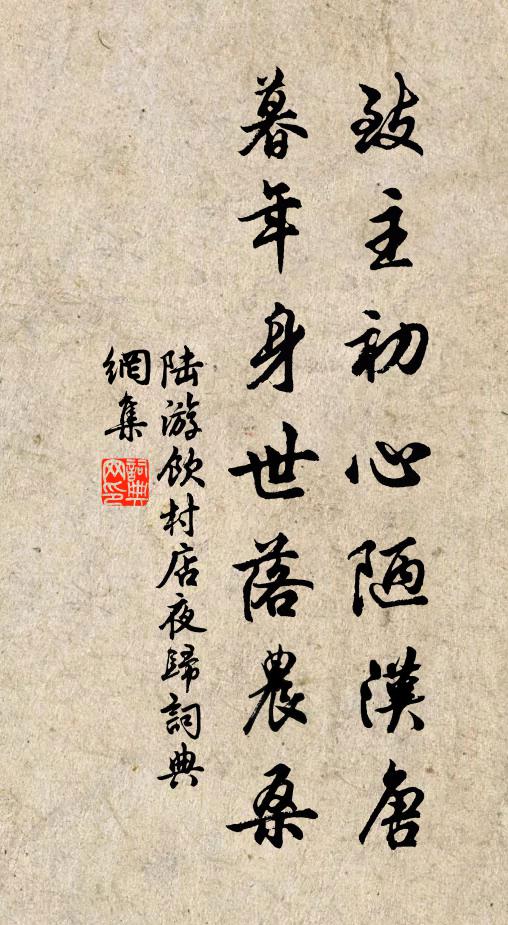 致主初心陋漢唐
暮年身世落農桑
陸游飲村店夜歸詞典
網集
詞典
网印